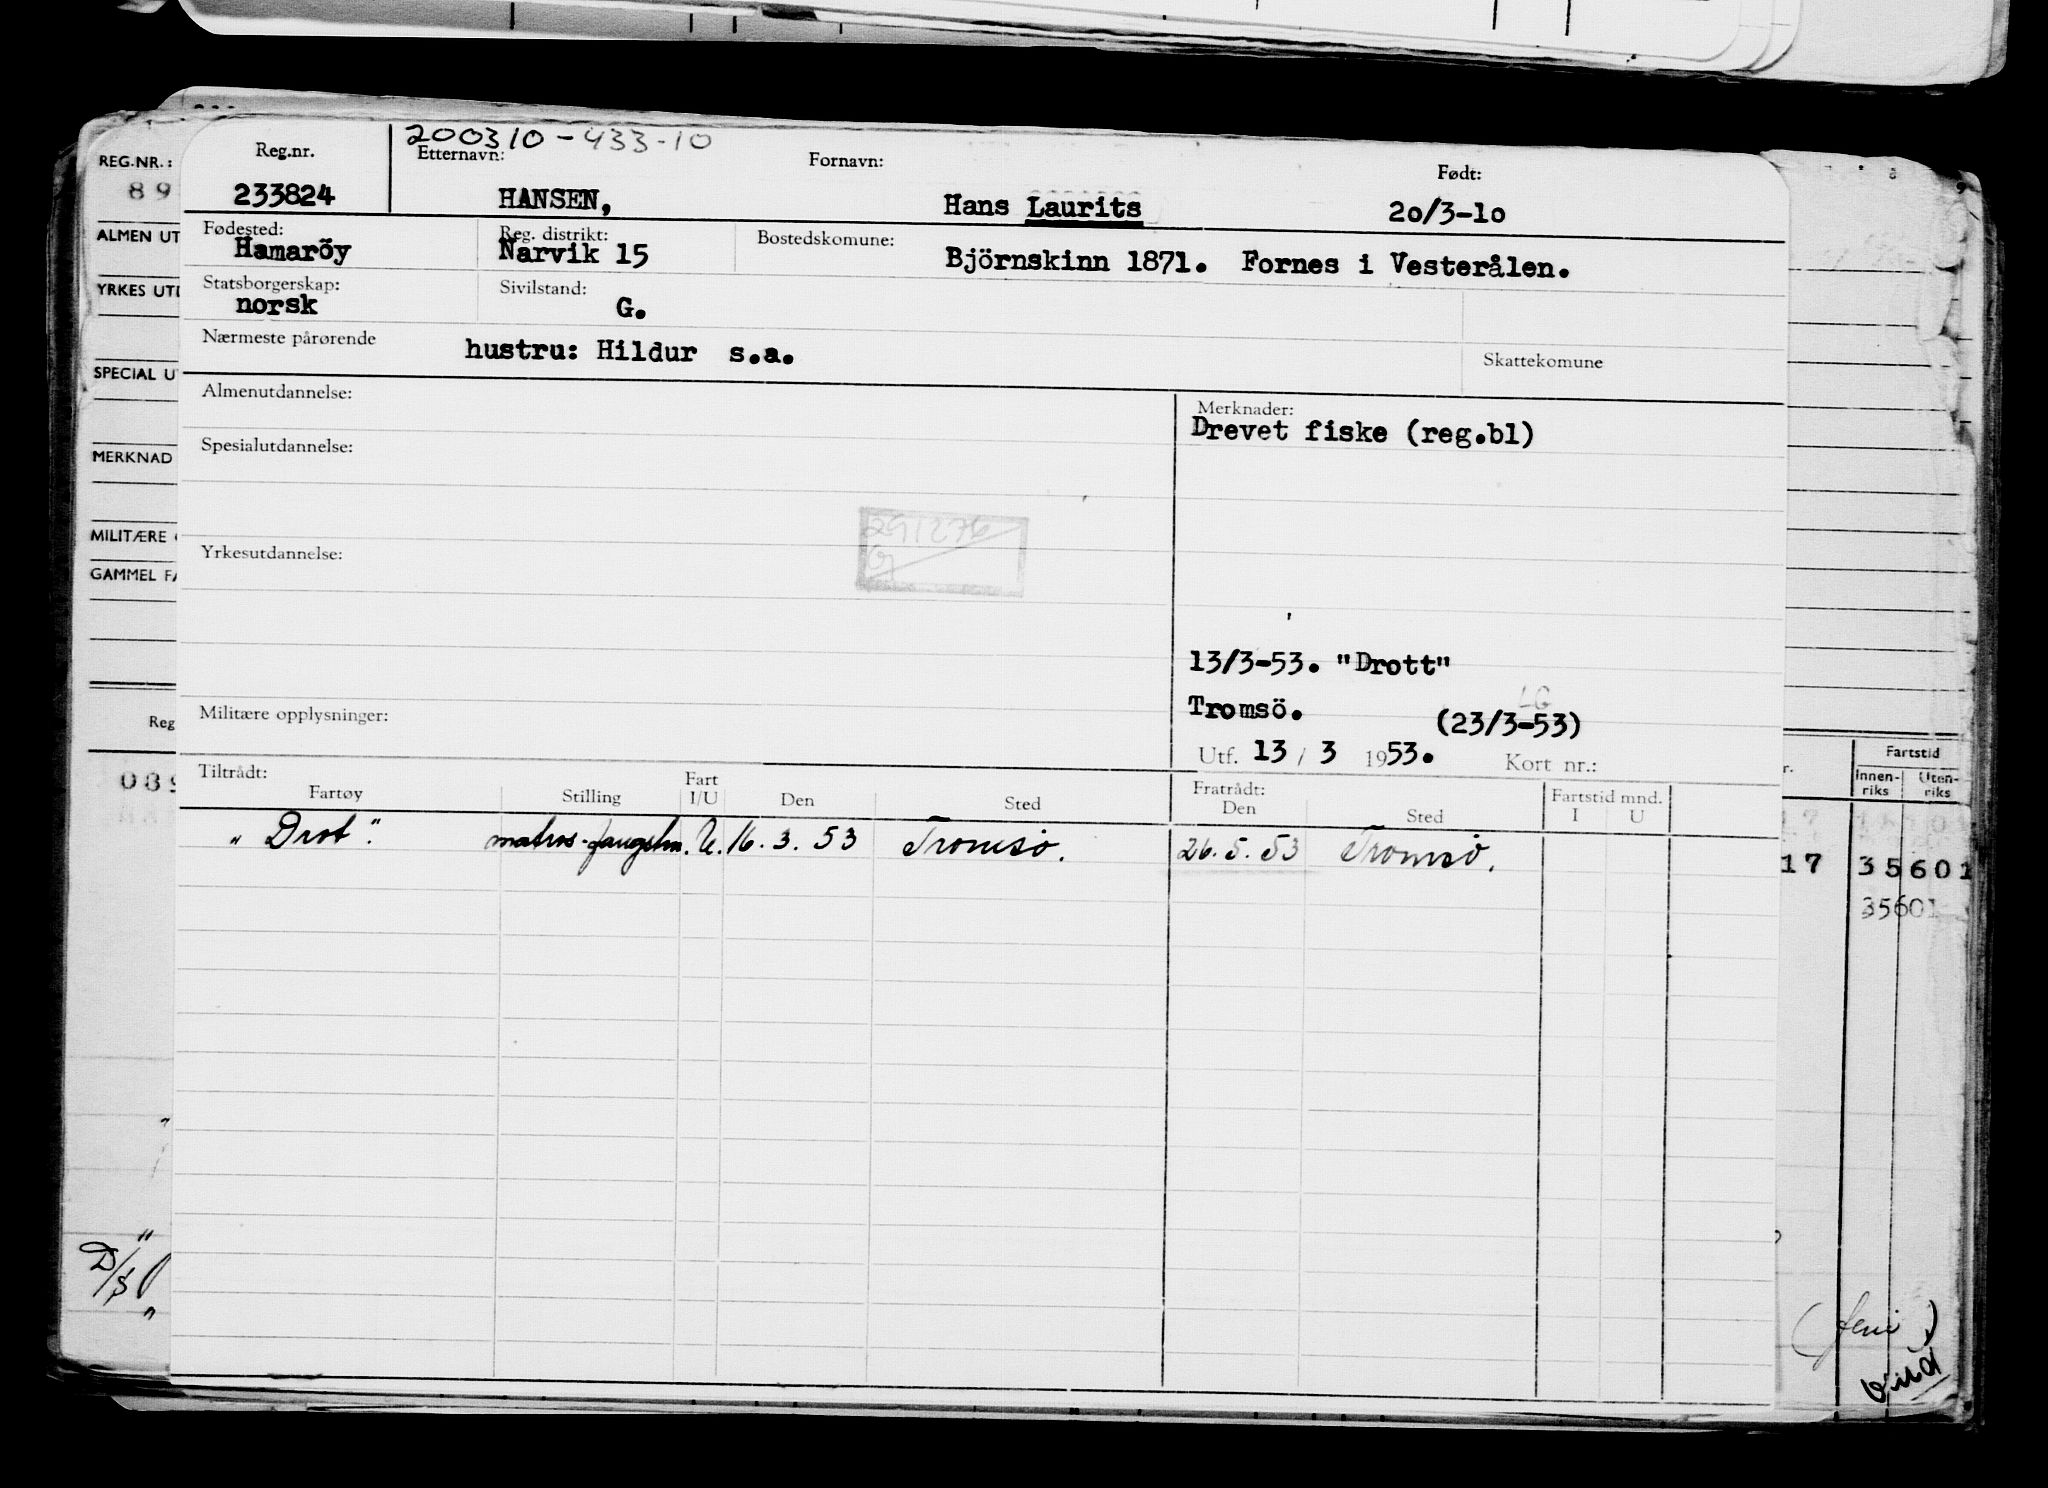 200310-433-10
REG.NR.: Reg.nr. Etternavn: Fornavn: Født:
89 233824 HANSEN, Hans Laurits 20/3-10
ALMEN UT Fødested: Reg. distrikt: Bostedskomune:
Hamaröy Narvik 15 Björnskinn 1871. Fornes i Vesterålen.
YRKES UTD Statsborgerskap: Sivilstand:
norsk G.
Nærmeste pårørende hustru: Hildur s.a. Skattekomune
SPECIAL UT
Almenutdannelse: Merknader:
Drevet fiske (reg.bl)
MERKNAD Spesialutdannelse:
291276
G
MILITÆRE
Yrkesutdannelse:
GAMMEL FA
13/3-53. "Drott"
LG
Tromsö. (23/3-53)
Reg Militære opplysninger:
Utf. 13 / 3 1953. Kort nr.:
Fartstid
Innenriks Utenriks
089 Tiltrådt: Fratrådt:
Fartøy Stilling Fart I/U Den Sted Den Sted Fartstid mnd. I U
"Drot". matros-fangstm. U. 16. 3. 53 Tromsø. 26. 5. 53 Tromsø.
17 35601
35601
D/S